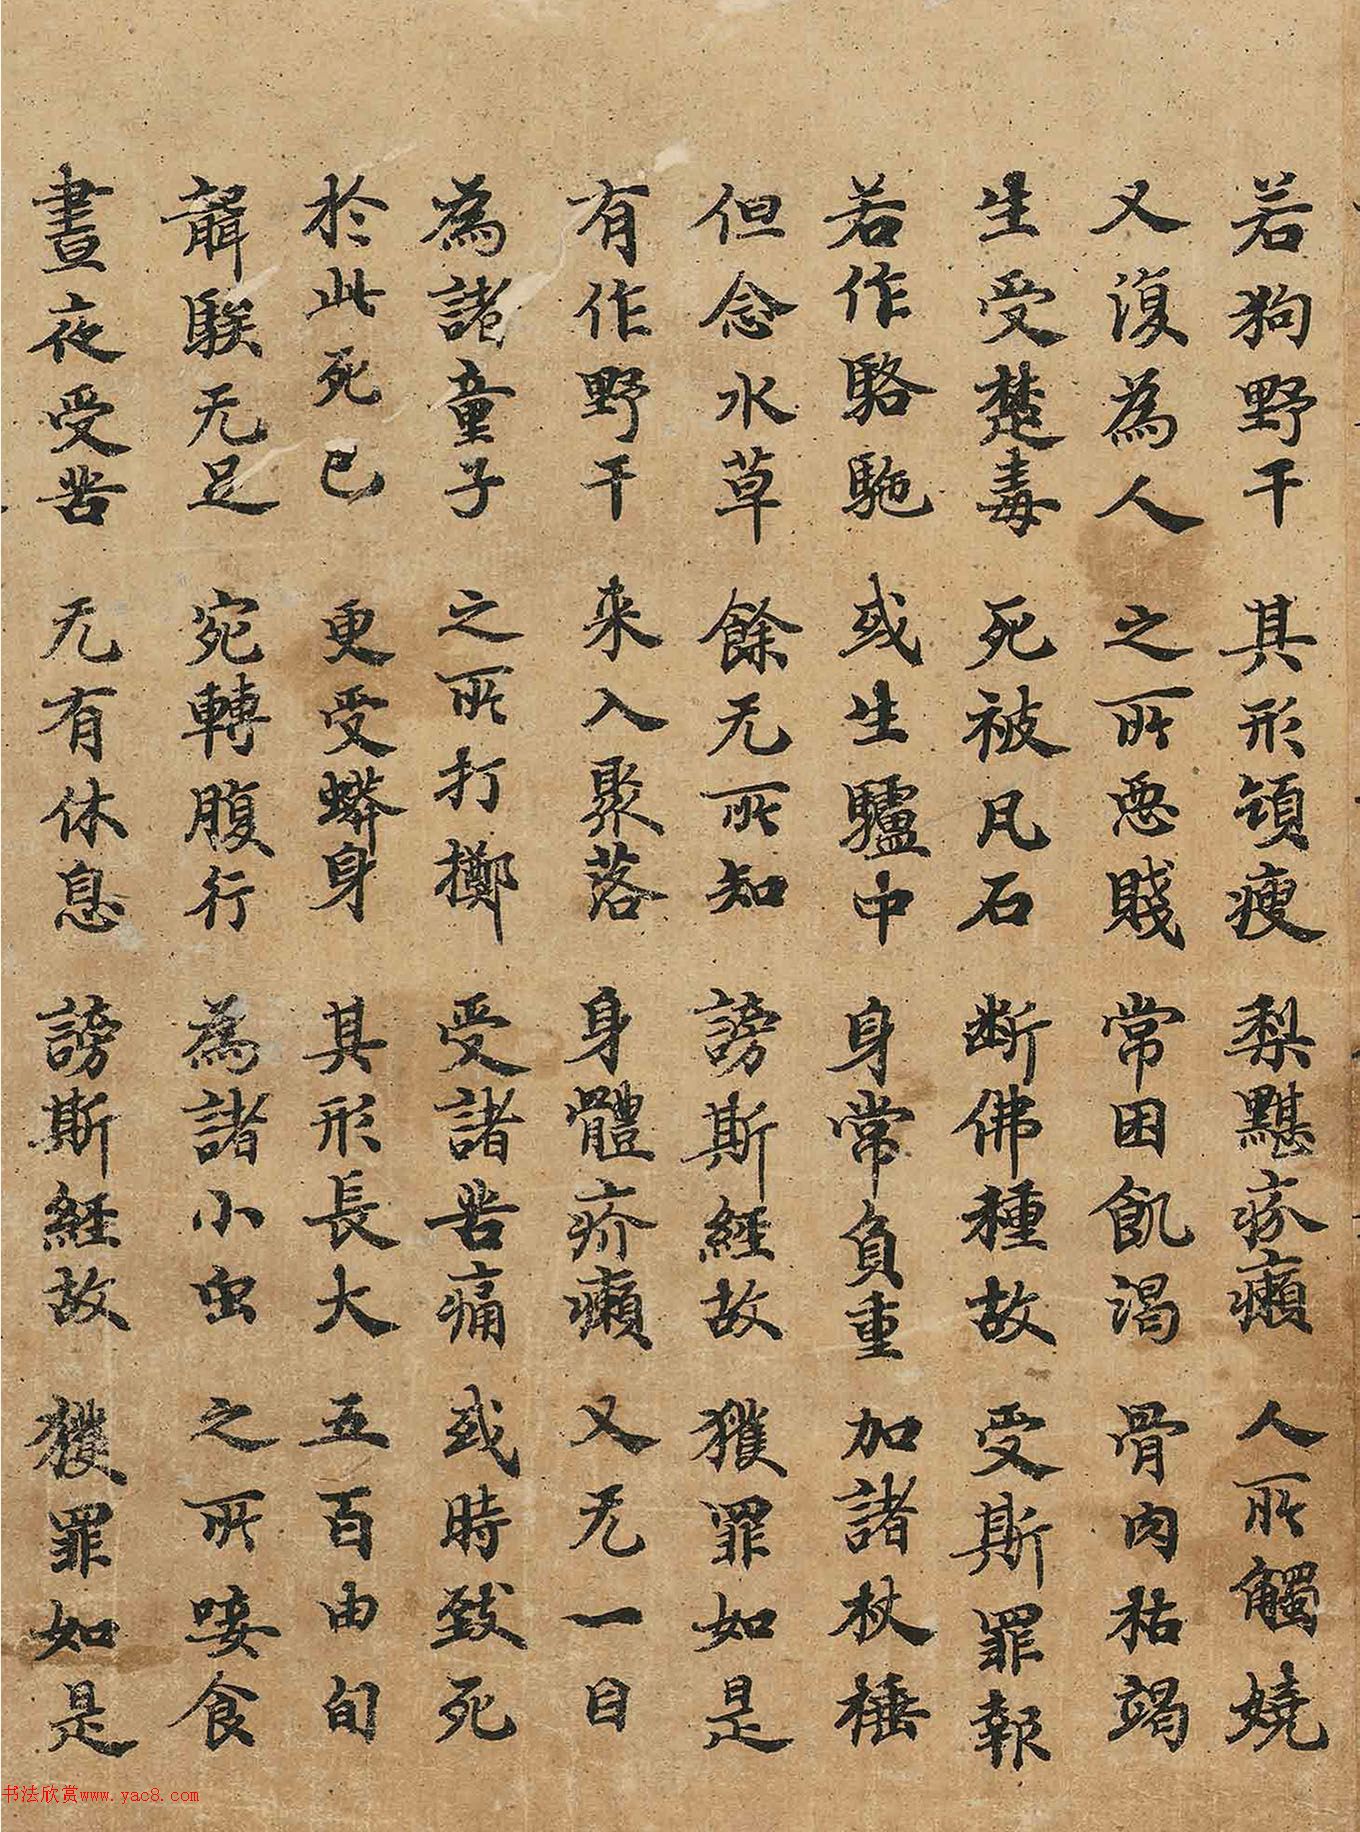 若狗野干 其形領瘦 梨黮疥癩 人所觸嬈
又復為人 之所惡賤 常困飢渴 骨肉枯竭
生受楚毒 死被凡石 断佛種故 受斯罪報
若作駱駞 或生驢中 身常負重 加諸杖棰
但念水草 餘无所知 謗斯經故 獲罪如是
有作野干 来入聚落 身體疥癩 又无一目
為諸童子 之所打擲 受諸苦痛 或時致死
於此死已 更受蟒身 其形長大 五百由旬
聾騃无足 宛轉腹行 為諸小虫 之所唼食
晝夜受苦 无有休息 謗斯經故 獲罪如是
书法欣赏www.yac8.com